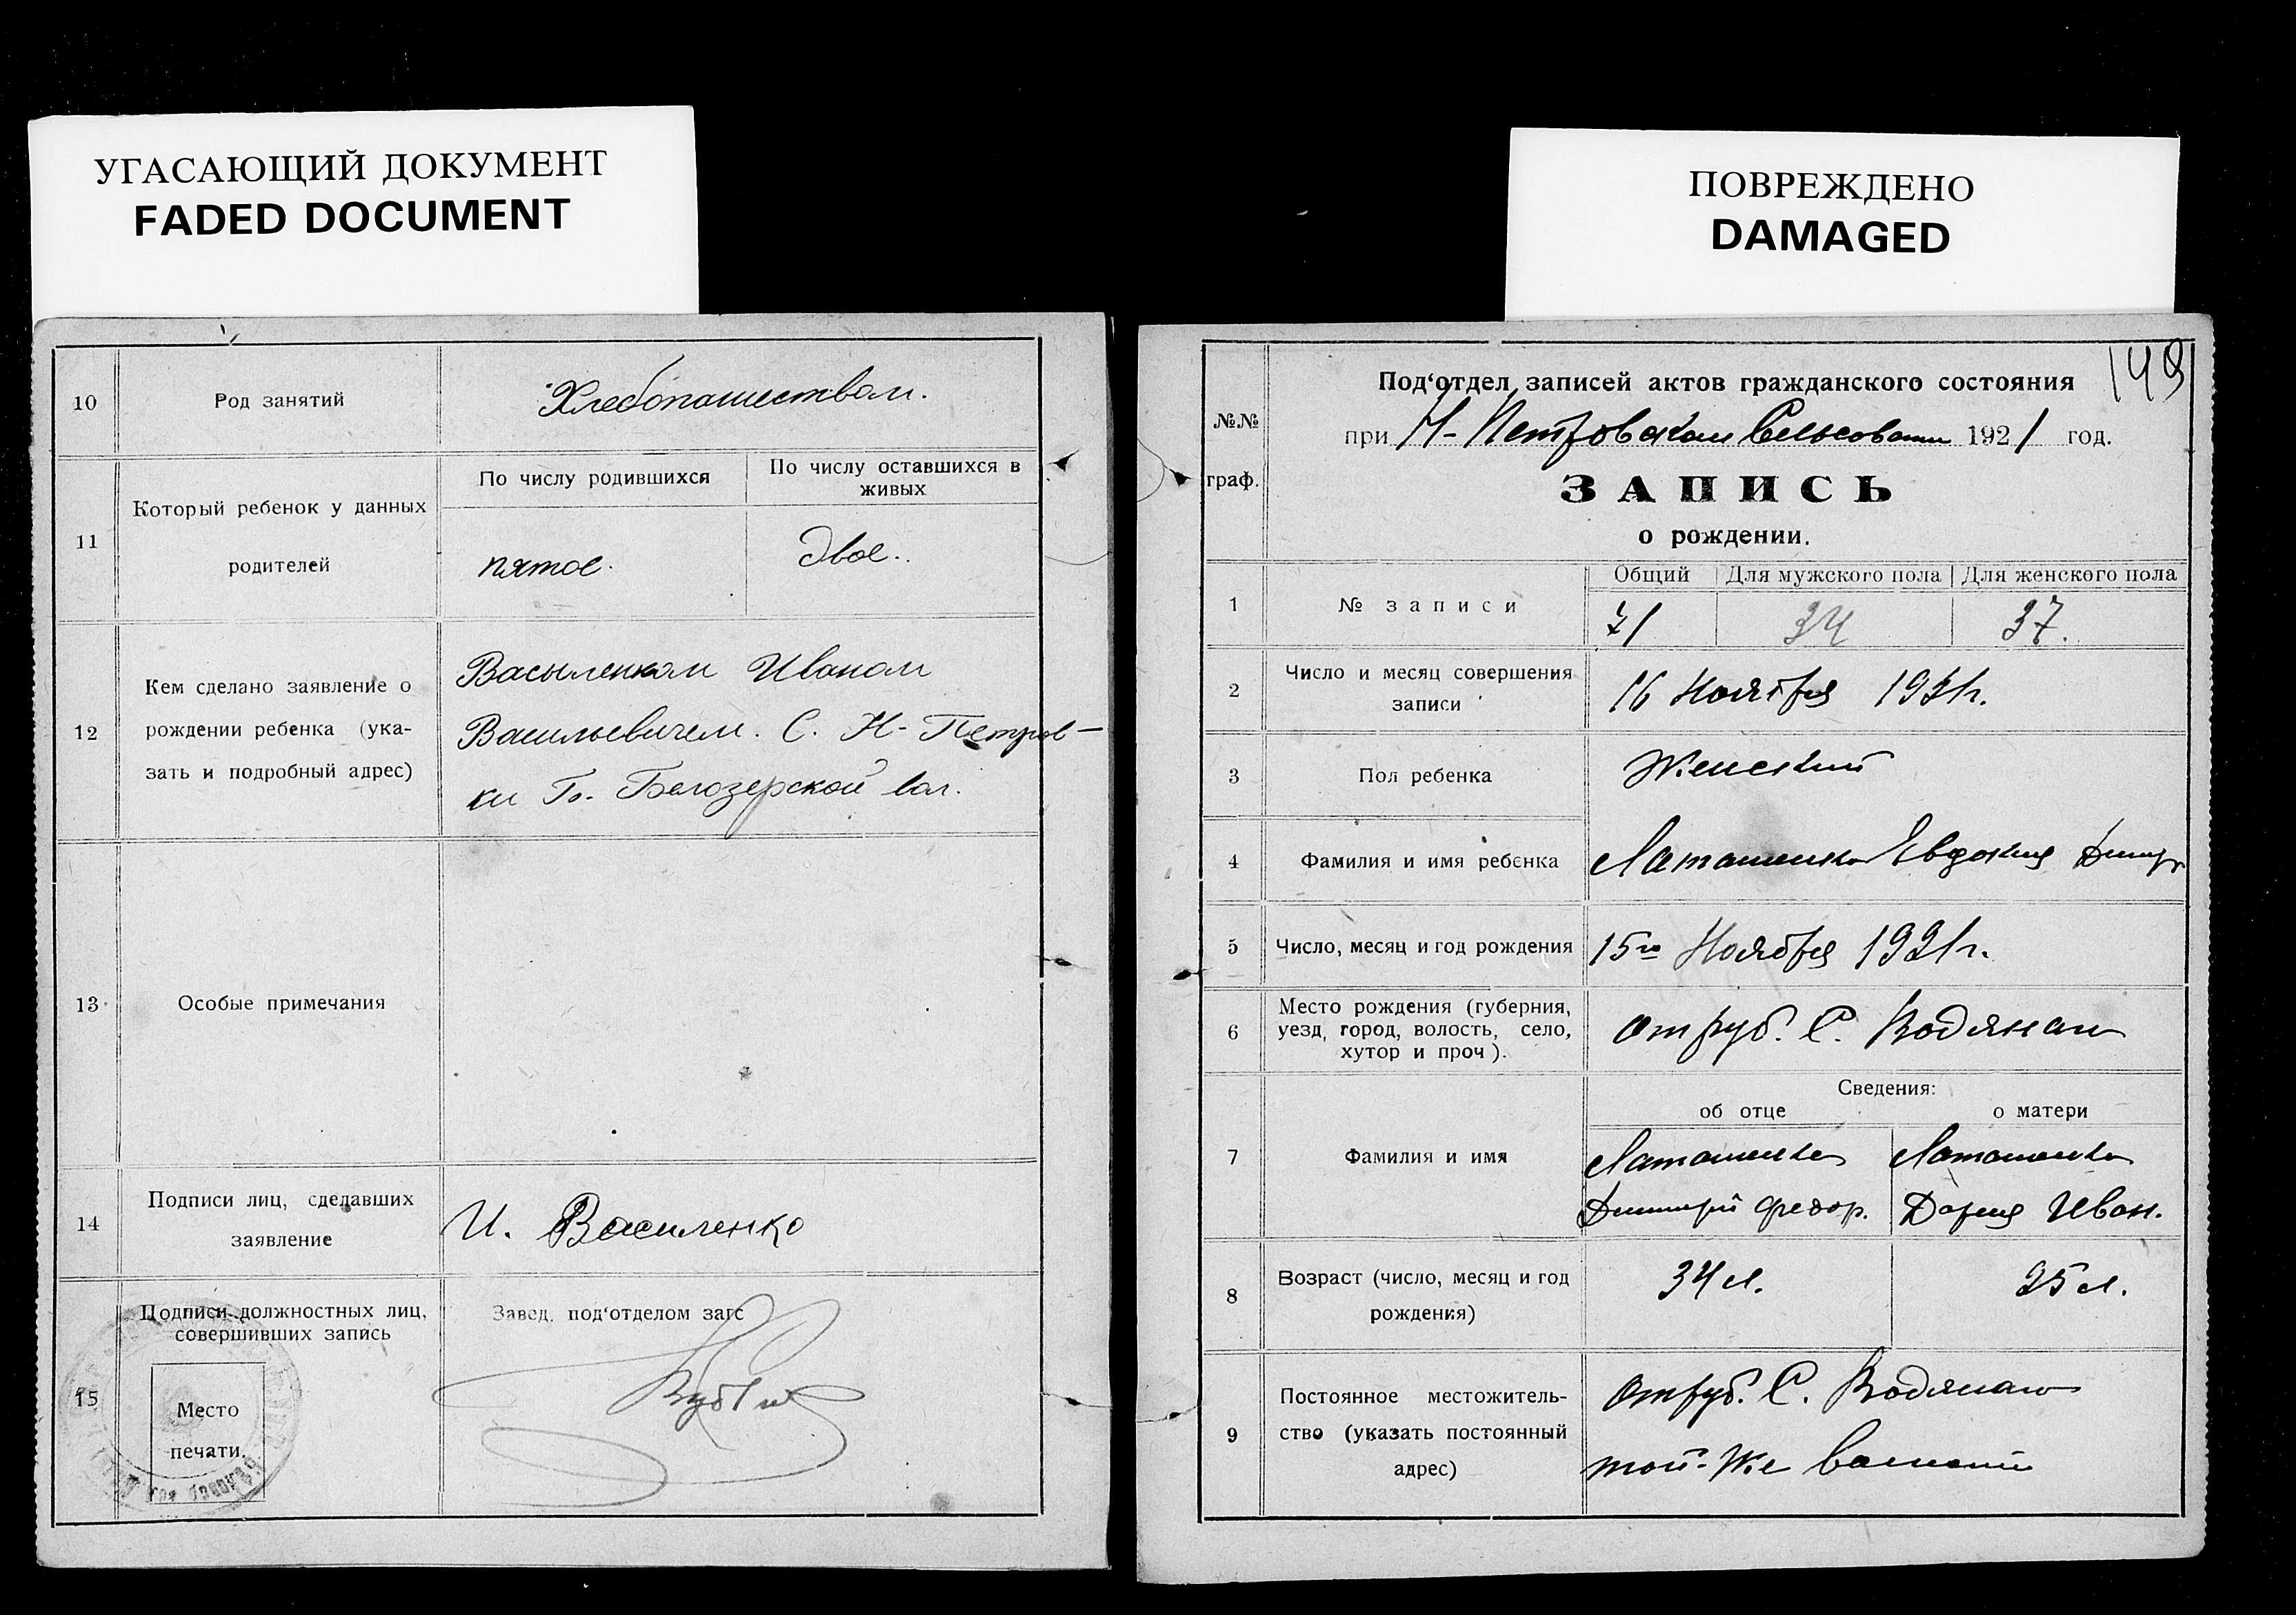 УГАСАЮЩИЙ ДОКУМЕНТ
FADED DOCUMENT
ПОВРЕЖДЕНО
DAMAGED
10
Род занятий
Хлебопашеством.
11
Который ребенок у данных
родителей
По числу родившихся
По числу оставшихся в
живых
пятое.
двое.
12
Кем сделано заявление о
рождении ребенка (ука-
зать и подробный адрес)
Васыленком Иваном
Васильевичем. С. Н-Петров-
ки Б. Белозерской вол.
13
Особые примечания
14
Подписи лиц, сделавших
заявление
И. Василенко
15
Подписи должностных лиц,
совершивших запись
Место
печати.
Завед. под‘отделом загс
149
№№
граф.
Под‘отдел записей актов гражданского состояния
при Н-Петровском Сельсовете 1921 год.
ЗАПИСЬ
о рождении.
1
№ записи
Общий
Для мужского пола
Для женского пола
71
34
37.
2
Число и месяц совершения
записи
16 Ноября 1921г.
3
Пол ребенка
Женский
4
Фамилия и имя ребенка
Латашенко Евдокия Дмитр
5
Число, месяц и год рождения
15го Ноября 1921г.
6
Место рождения (губерния,
уезд, город, волость, село,
хутор и проч).
Отруб. С. Водянаго
7
Фамилия и имя
Сведения:
об отце
о матери
Латашенко
Дмитрий Федор.
Латашенко
Дария Иван.
8
Возраст (число, месяц и год
рождения)
34 л.
25 л.
9
Постоянное местожитель-
ство (указать постоянный
адрес)
Отруб. С. Водянаго
той-же волости